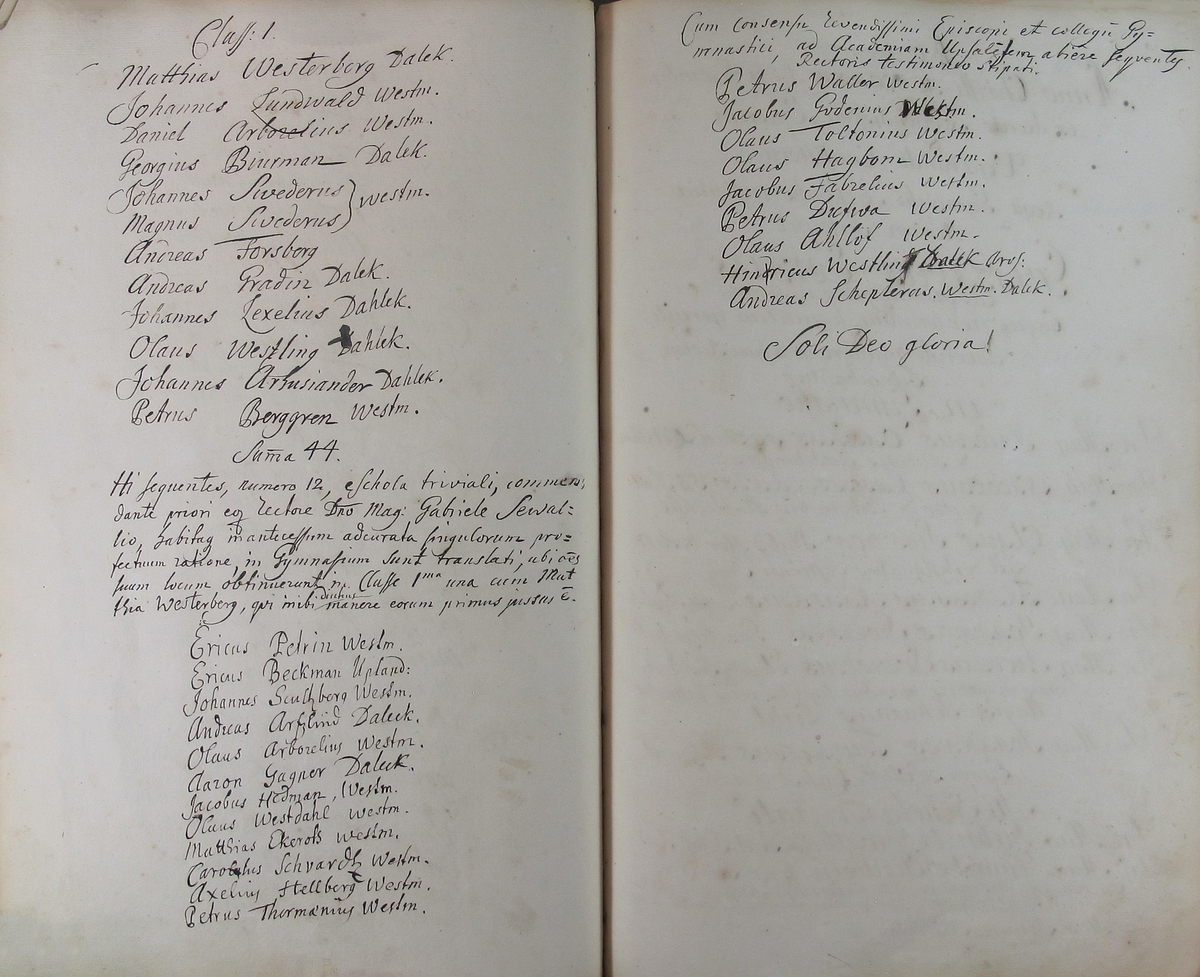 Class: 1.
Matthias Westerberg Dalek.
Johannes Lundwald Westm.
Daniel Arborelius Westm.
Georgius Biurman Dalek.
Johannes Swederus } Westm.
Magnus Swederus
Andreas Forsberg
Andreas Gradin Dalek.
Johannes Lexelius Dahlek.
Olaus Westling Dahlek.
Johannes Arhusiander Dahlek.
Petrus Berggren Westm.
Sum̄a 44.
Hi sequentes, numero 12, e Schola triviali, commen,
dante priori eoꝗ Rectore Dno Mag: Gabriele Sewal=
lio, habitaꝗ in antecessum adcurata singulorum pro=
fectuum ratione, in Gymnasium sunt translati, ubi
suum locum obtinuerunt, Classe 1ma una cum Mat
thia Westerberg, qvi inibi diutius manere eorum primus jussus ē.
Ericus Petrin Westm.
Ericus Beckman Upland:
Johannes Scultzberg Westm.
Andreas Arfflind Daleck.
Olaus Arborelius Westm.
Aaron Gagner Daleck.
Jacobus Hedman, Westm.
Olaus Westdahl Westm.
Matthias Ekeroth Westm.
Carolus Schvardtz Westm.
Axelius Hellberg Westm.
Petrus Thormænius Westm.
Cum consensu Reverendissimi Episcopi et collegii Gy=
mnastici, ad Academiam Upsalensem abiere seqventes
Rectoris testimonio stipati.
Petrus Waller Westm.
Jacobus Gudenius Westm.
Olaus Toltonius Westm.
Olaus Hagbom Westm.
Jacobus Fabrelius Westm.
Petrus Dufwa Westm.
Olaus Ahllöf Westm.
Hinricus Westling Dalek
Andreas Schepterus. Westm. Dalek.
Soli Deo gloria!